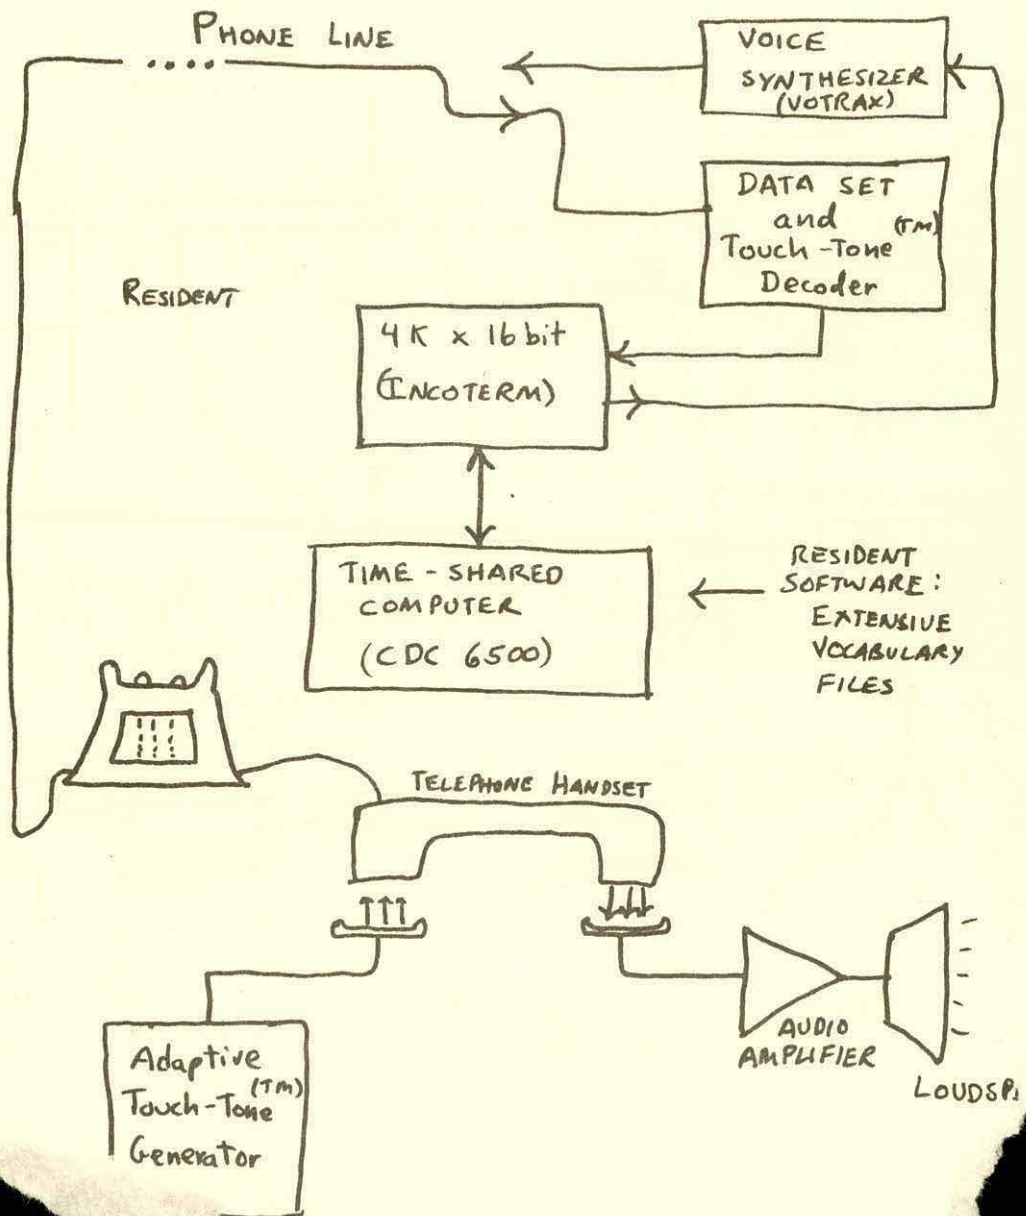 PHONE LINE
VOICE
SYNTHESIZER
(VOTRAX)
DATA SET
and
Touch-Tone (TM)
Decoder
RESIDENT
4K x 16 bit
(INCOTERM)
TIME - SHARED
COMPUTER
(CDC 6500)
RESIDENT
SOFTWARE:
EXTENSIVE
VOCABULARY
FILES
TELEPHONE HANDSET
AUDIO
AMPLIFIER
LOUDSP
Adaptive
Touch-Tone (TM)
Generator